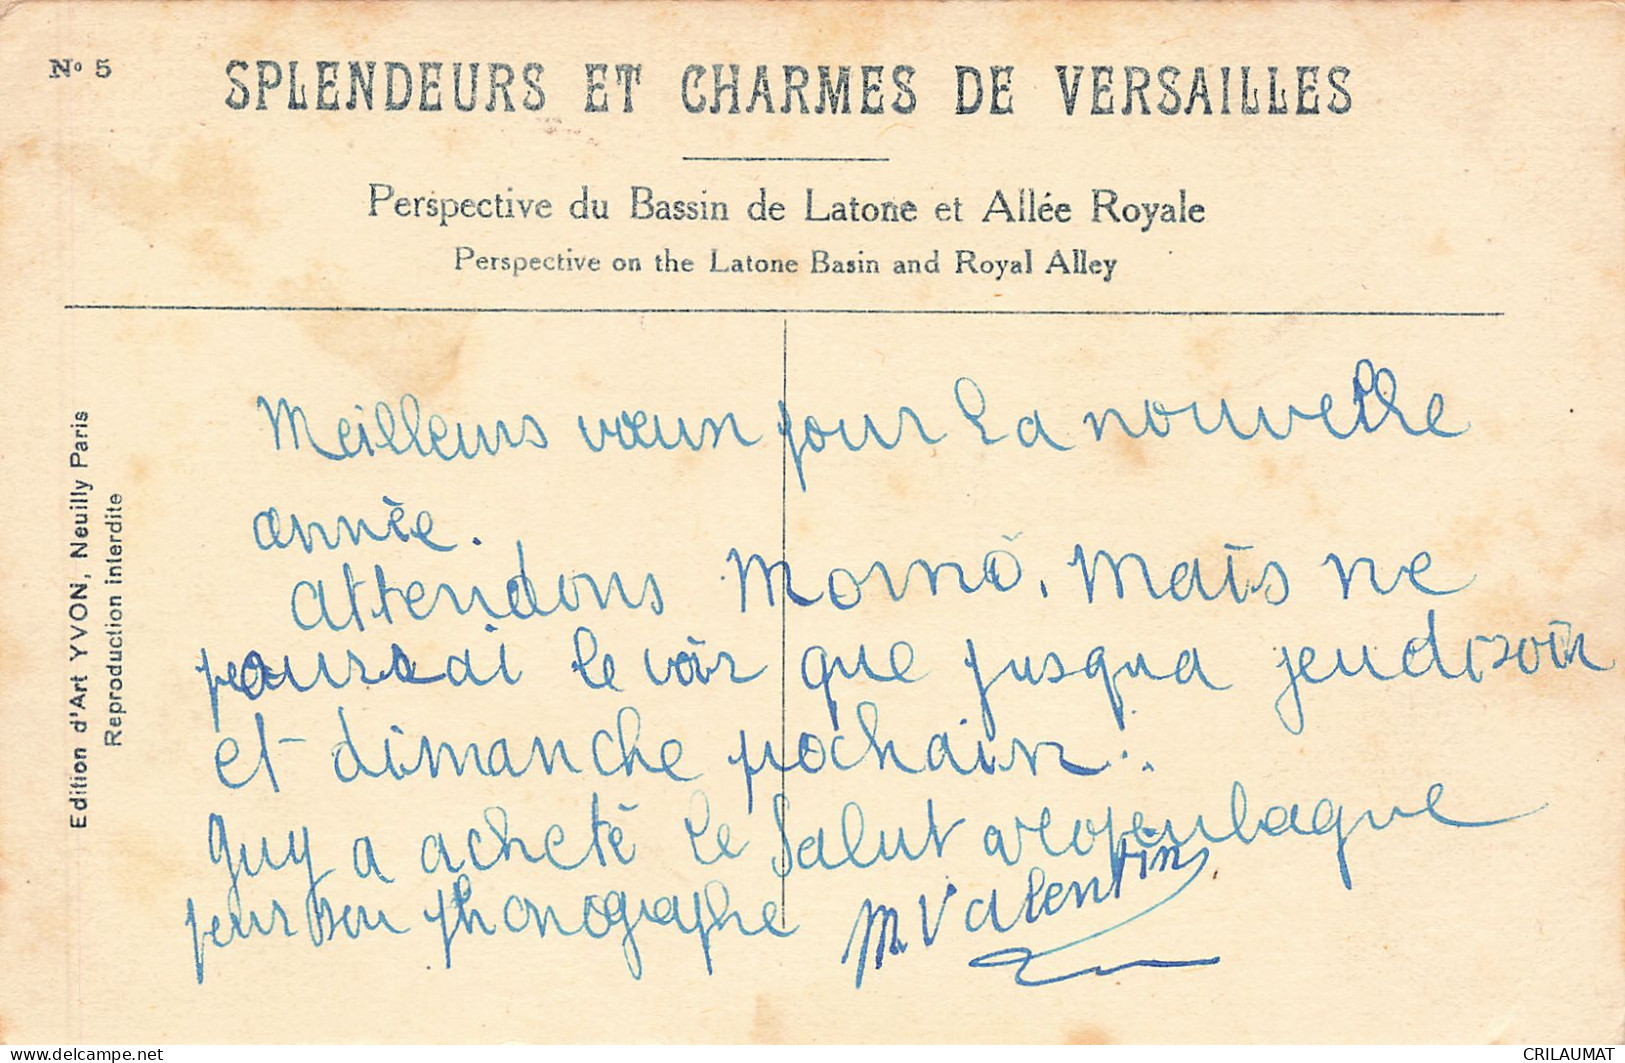 Nº 5
SPLENDEURS ET CHARMES DE VERSAILLES
Perspective du Bassin de Latone et Allée Royale
Perspective on the Latone Basin and Royal Alley
Edition d'Art YVON, Neuilly Paris
Reproduction interdite
Meilleurs vœux pour la nouvelle
année.
attendons Momo. Mais ne
pourrai le voir que jusqua jeudi soir
et dimanche pochain.
Guy a acheté le Salut
pour son phonographe
M Valentin
delcampe.net
CRILAUMAT